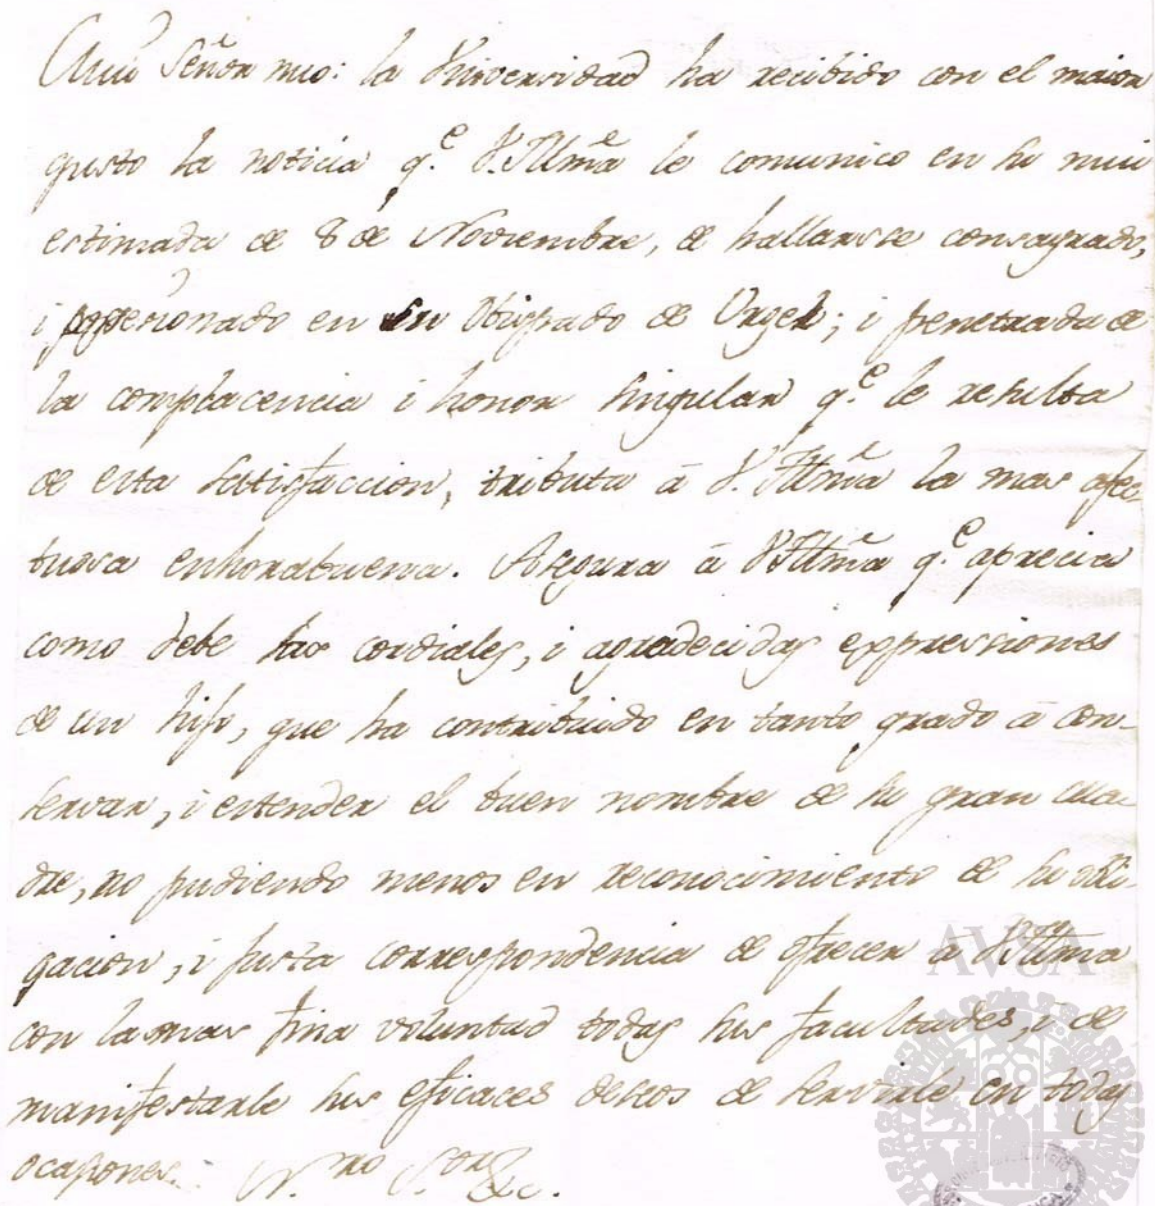 Mui Señor mio: la Universidad ha recibido con el maior
gusto la noticia q.e V.Illma le comunico en su mui
estimada de 8 de Noviembre, de hallarse consagrado,
i posesionado en su Obispado de Urgel; i penetrada de
la complacencia i honor singular q.e le resulta
de esta satisfaccion, tributa à V. Illma la mas afec-
tuosa enhorabuena. Asegura à V.Illma q.e aprecia
como debe las cordiales, i agradecidas expresiones
de un hijo, que ha contribuido en tanto grado à con-
servar, i estender el buen nombre de su gran Ma-
dre, no pudiendo menos en reconocimiento de su obli-
gacion, i justa correspondencia de ofrecer à V.Illma
con la mas fina voluntad todas sus facultades, i de
manifestarle sus eficaces deseos de servirle en todas
ocasiones. N.ro S.or &c.
AVSA